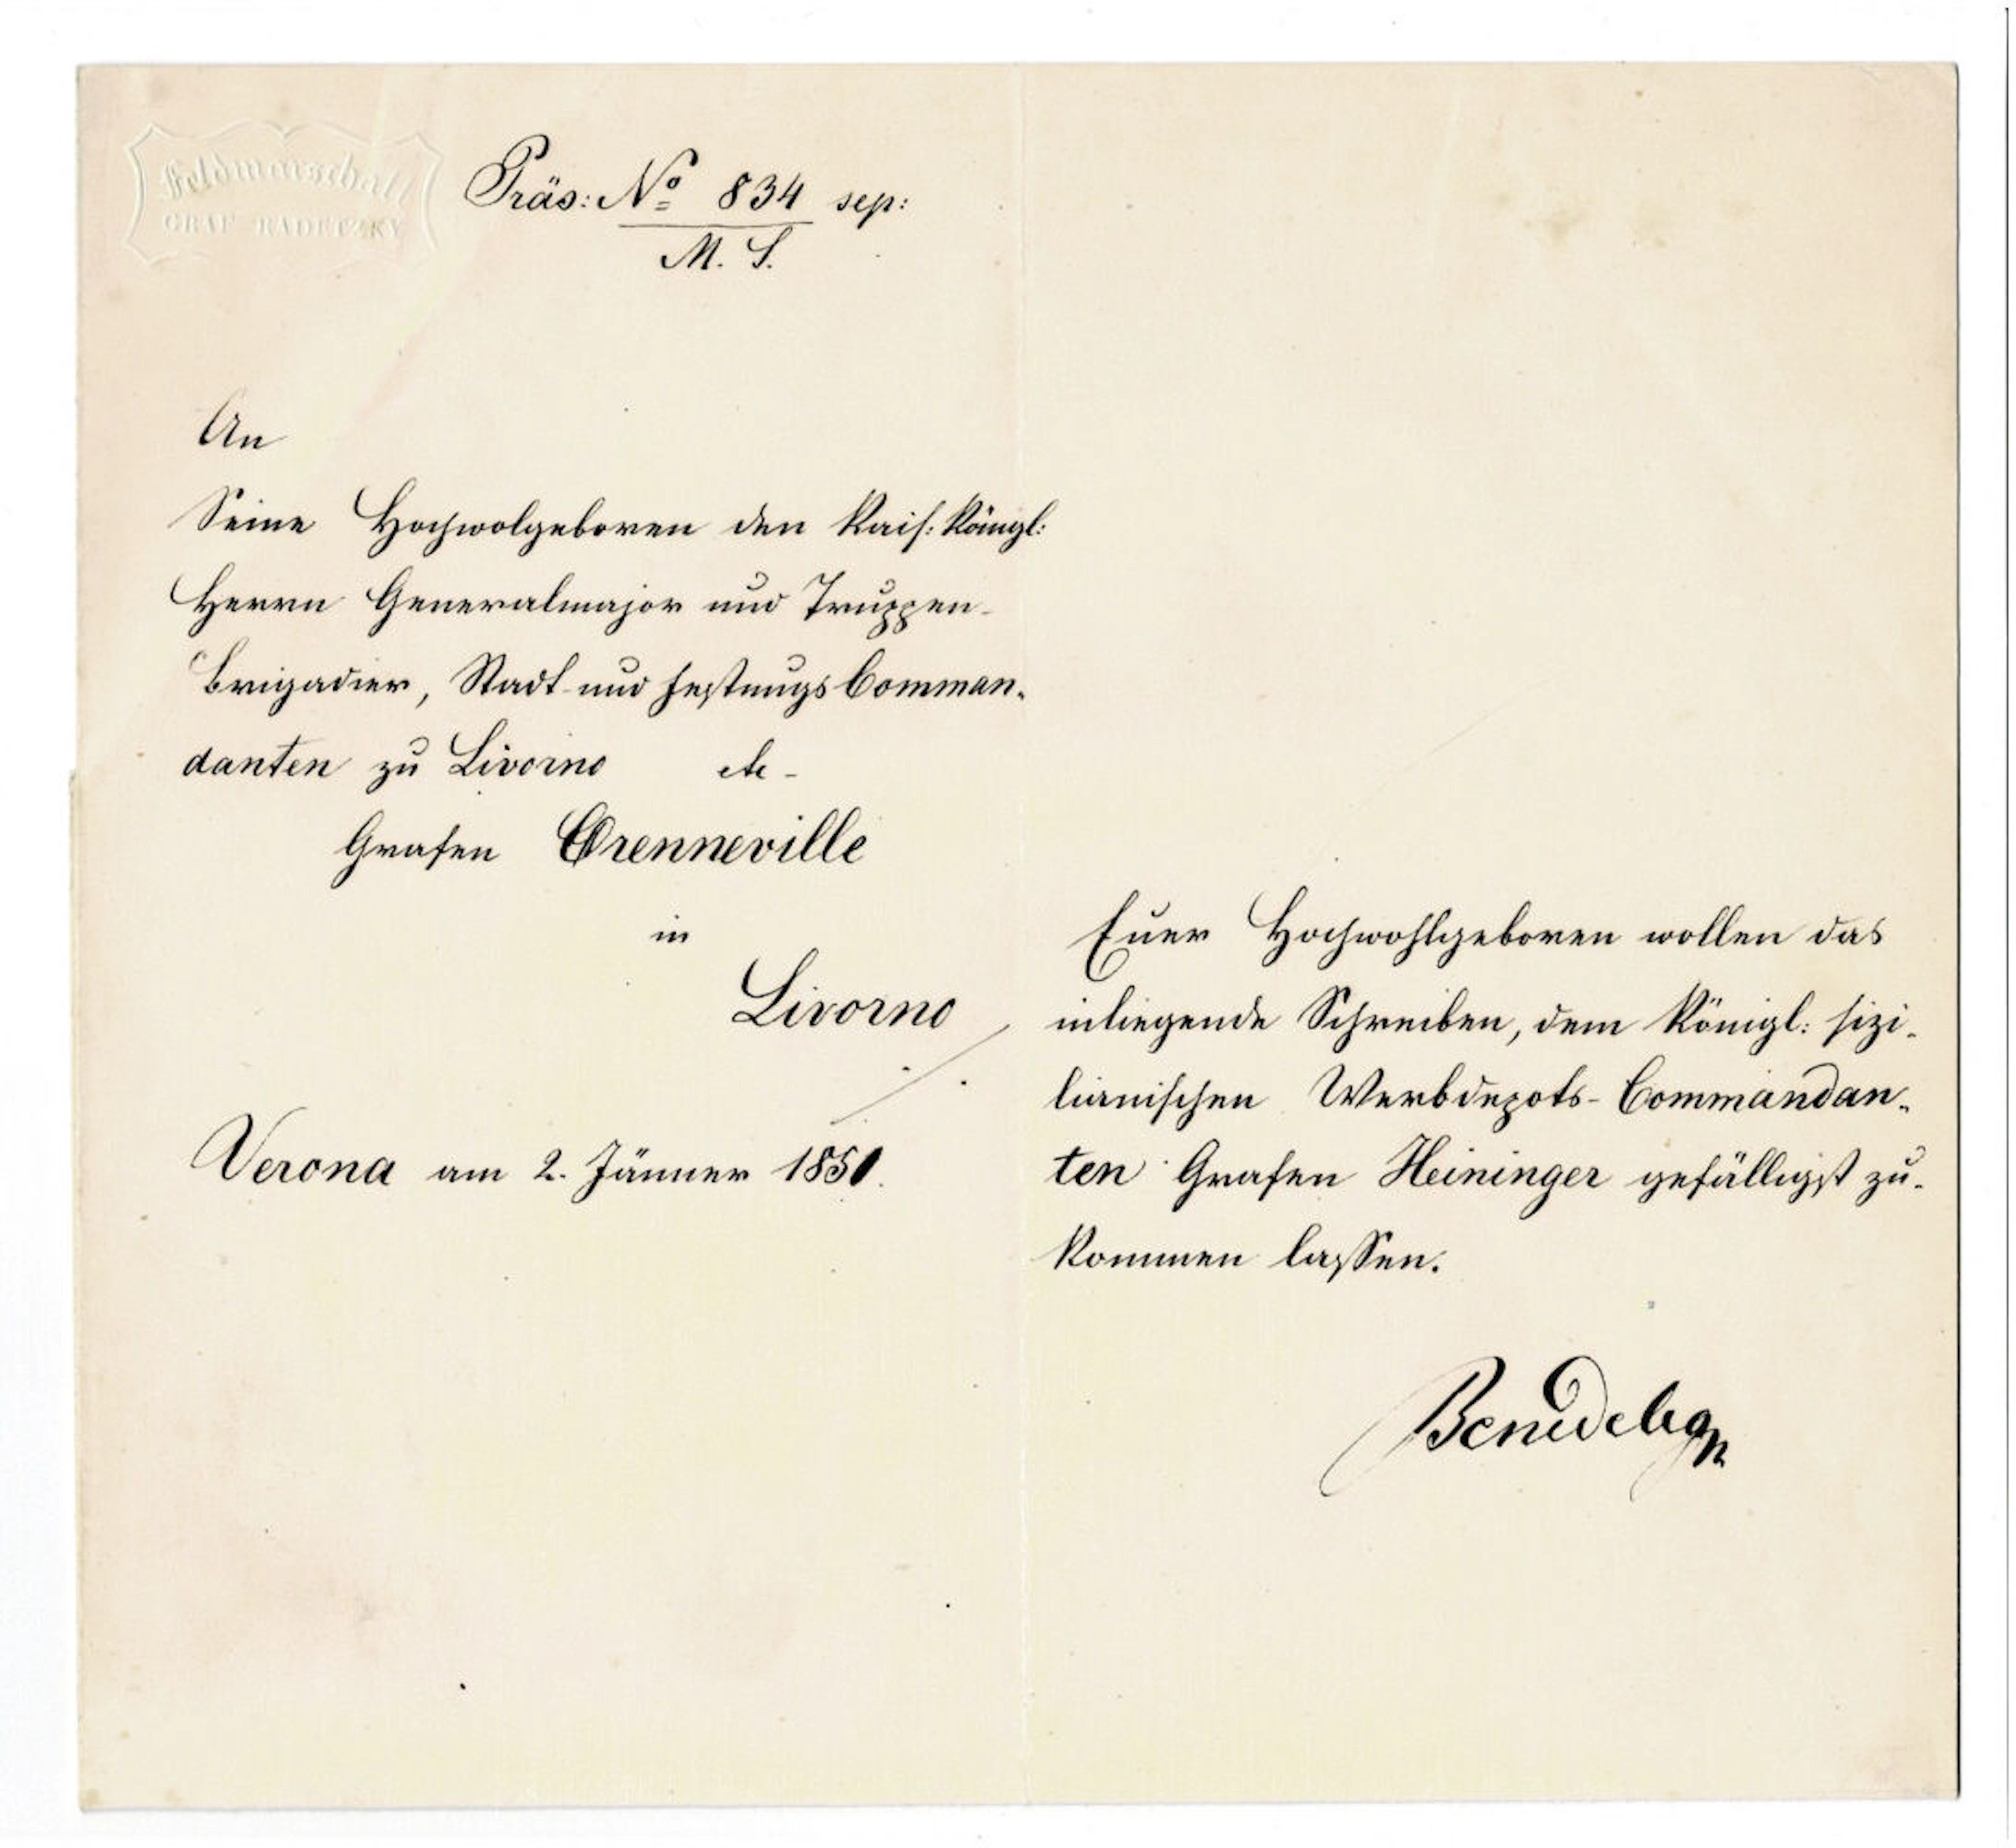 Feldmarschall
GRAF RADETZKY
Präs: No 834 sep:
M. S.
An
Seine Hochwolgeboren den Kais: Königl:
Herrn Generalmajor und Truppen-
Brigadier, Stadt- und Festungs Comman-
danten zu Livorno etc -
Grafen Crenneville
in
Livorno
Verona am 2. Jänner 1851.
Euer Hochwohlgeboren wollen das
inliegende Schreiben, dem Königl: sizi-
lianischen Werbdepots-Commandan-
ten Grafen Heininger gefälligst zu-
kommen lassen.